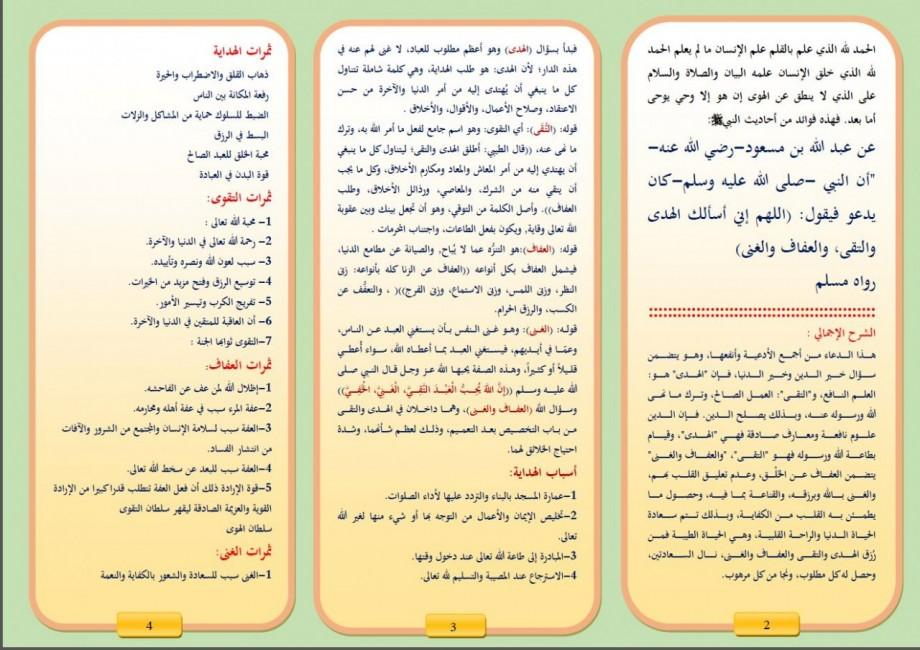 الحمد لله الذي علم بالقلم علم الإنسان ما لم يعلم الحمد
لله الذي خلق الإنسان علمه البيان والصلاة والسلام
على الذي لا ينطق عن الهوى إن هو إلا وحي يوحى
أما بعد. فهذه فوائد من أحاديث النبي ﷺ:
عن عبد الله بن مسعود-رضي الله عنه-
"أن النبي -صلى الله عليه وسلم-كان
يدعو فيقول: (اللهم إني أسألك الهدى
والتقى، والعفاف والغنى)
رواه مسلم
الشرح الإجمالي :
هذا الدعاء من أجمع الأدعية وأنفعها، وهو يتضمن
سؤال خير الدين وخير الدنيا، فإن "الهدى" هو:
العلم النافع، و"التقى": العمل الصالح، وترك ما نهى
الله ورسوله عنه، وبذلك يصلح الدين. فإن الدين
علوم نافعة ومعارف صادقة فهي "الهدى"، وقيام
بطاعة الله ورسوله فهو "التقى"، "والعفاف والغنى"
يتضمن العفاف عن الخلق، وعدم تعليق القلب بهم،
والغنى بالله وبرزقه، والقناعة بما فيه، وحصول ما
يطمئن به القلب من الكفاية، وبذلك تتم سعادة
الحياة الدنيا والراحة القلبية، وهي الحياة الطيبة فمن
رُزق الهدى والتقى والعفاف والغنى، نال السعادتين،
وحصل له كل مطلوب، ونجا من كل مرهوب.
2
فبدأ بسؤال (الهدى) وهو أعظم مطلوب للعباد، لا غنى لهم عنه في
هذه الدار؛ لأن الهدى: هو طلب الهداية، وهي كلمة شاملة تتناول
كل ما ينبغي أن يُهتدى إليه من أمر الدنيا والآخرة من حسن
الاعتقاد، وصلاح الأعمال، والأقوال، والأخلاق .
قوله: (التُّقى): أي التقوى: وهو اسم جامع لفعل ما أمر الله به، وترك
ما نهى عنه، ((قال الطيبي: أطلق الهدى والتقى؛ ليتناول كل ما ينبغي
أن يهتدي إليه من أمر المعاش والمعاد ومكارم الأخلاق، وكل ما يجب
أن يتقي منه من الشرك، والمعاصي، ورذائل الأخلاق، وطلب
العفاف)). وأصل الكلمة من التوقي، وهو أن تجعل بينك وبين عقوبة
الله تعالى وقاية، ويكون بفعل الطاعات، واجتناب المحرمات .
قوله: (العفاف):هو التنزُّه عما لا يُباح، والصيانة عن مطامع الدنيا،
فيشمل العفاف بكل أنواعه ((العفاف عن الزنا كله بأنواعه: زنى
النظر، وزنى اللمس، وزنى الاستماع، وزنى الفرج))( ، والتعفُّف عن
الكسب، والرزق الحرام.
قوله: (الغنى): وهو غنى النفس بأن يستغني العبد عن الناس،
وعمّا في أيديهم، فيستغني العبد بما أعطاه الله، سواء أُعطي
قليلاً أو كثيراً، وهذه الصفة يحبها الله عز وجل قال النبي صلى
الله عليه وسلم ((إنَّ اللهَ يُحِبُّ الْعَبْدَ التَّقِيَّ، الْغَنِيَّ، الْخَفِيَّ))
وسؤال الله (العفاف والغنى)، وهما داخلان في الهدى والتقى
من باب التخصيص بعد التعميم، وذلك لعظم شأنهما، وشدة
احتياج الخلائق لهما.
أسباب الهداية:
1-عمارة المسجد بالبناء والتردد عليها لأداء الصلوات.
2-تخليص الإيمان والأعمال من التوجه بها أو شيء منها لغير الله
تعالى.
3-المبادرة إلى طاعة الله تعالى عند دخول وقتها.
4-الاسترجاع عند المصيبة والتسليم لله تعالى.
3
ثمرات الهداية
ذهاب القلق والاضطراب والحيرة
رفعة المكانة بين الناس
الضبط للسلوك حماية من المشاكل والزلات
البسط في الرزق
محبة الخلق للعبد الصالح
قوة البدن في العبادة
ثمرات التقوى:
1- محبة الله تعالى :
2- رحمة الله تعالى في الدنيا والآخرة.
3- سبب لعون الله ونصره وتأييده.
4- توسيع الرزق وفتح مزيد من الخيرات.
5- تفريج الكرب وتيسير الأمور.
6- أن العاقبة للمتقين في الدنيا والآخرة.
7-التقوى ثوابها الجنة :
ثمرات العفاف:
1-إظلال الله لمن عف عن الفاحشه.
2-عفة المرء سبب في عفة أهله ومحارمه.
3-العفة سبب لسلامة الإنسان والمجتمع من الشرور والآفات
من انتشار الفساد.
4-العفه سبب للبعد عن سخط الله تعالى.
5-قوة الإرادة ذلك أن فعل العفة تتطلب قدراكبيرا من الإرادة
القوية والعزيمة الصادقة ليقهر سلطان التقوى
سلطان الهوى
ثمرات الغنى:
1-الغنى سبب للسعادة والشعور بالكفاية والنعمة
4